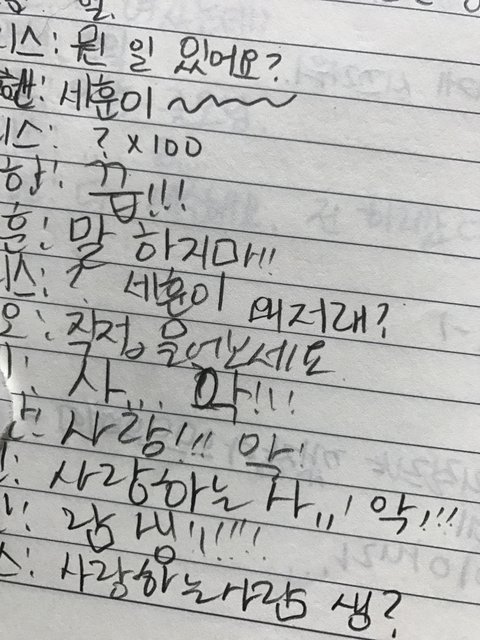 일.
스: 뭔 일 있어요?
핸: 세훈이 ~~~~
스: ? x100
합!!!
훈: 말 하지마!!
스: ? 세훈이 왜저래?
오: 직접 물어보세요
사... 악!!!
사랑!!! 악!
사랑하는 사,,! 악!!!
람 내!!!!!!
스: 사랑하는사람 생?